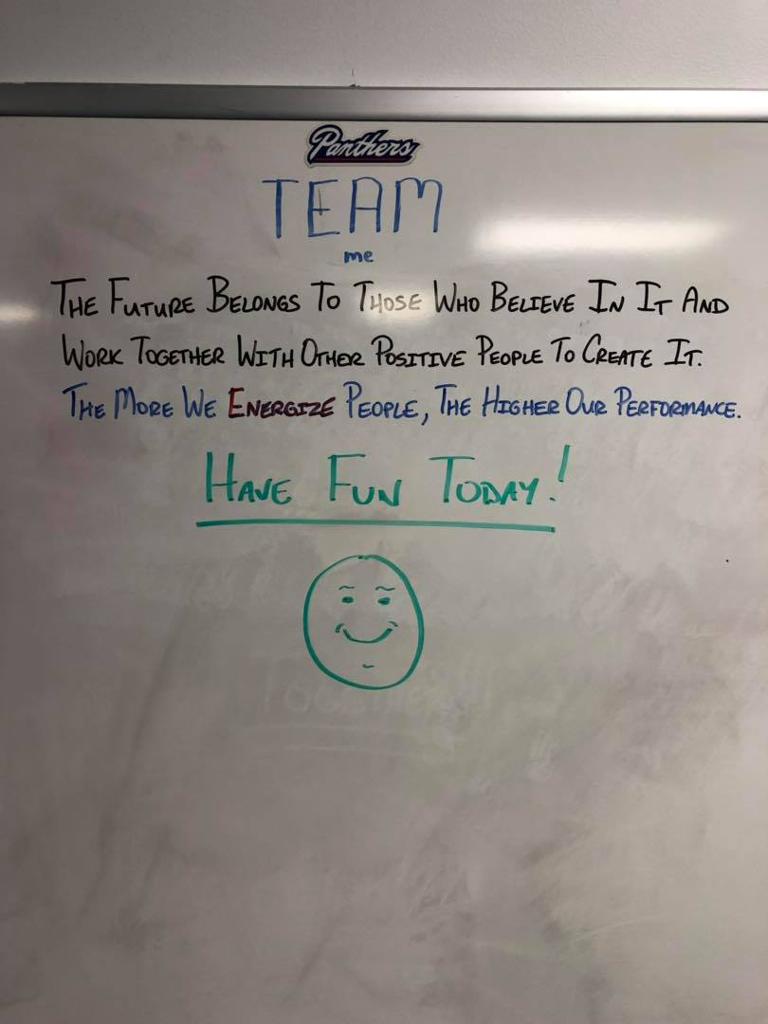 Panthers
TEAM
me
THE FUTURE BELONGS TO THOSE WHO BELIEVE IN IT AND
WORK TOGETHER WITH OTHER POSITIVE PEOPLE TO CREATE IT.
THE MORE WE ENERGIZE PEOPLE, THE HIGHER OUR PERFORMANCE.
HAVE FUN TODAY!